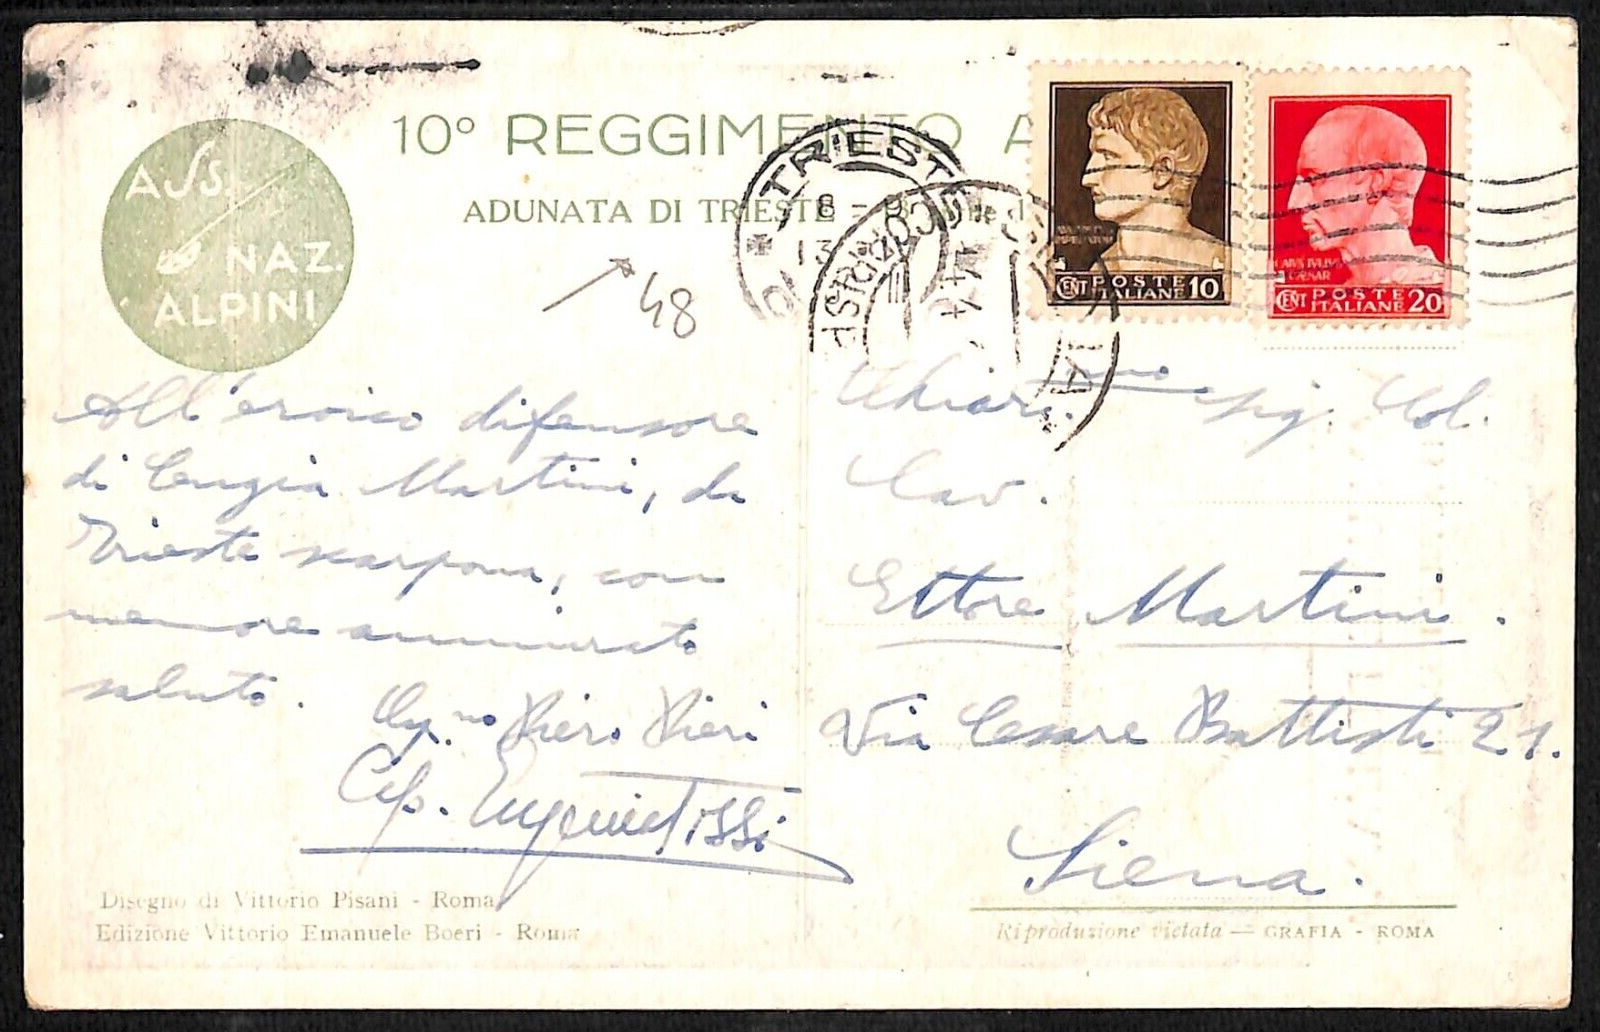 10° REGGIMENTO A
ADUNATA DI TRIESTE
ASS.
NAZ.
ALPINI
48
TRIESTE
8
13
CENT POSTE ITALIANE 10
CENT POSTE ITALIANE 20
All'eroico difensore
di Martini, da
Trieste scarpona, con
memore ammirato
saluto.
Piero Pieri
Cap. Tossi
Chiar.mo Sig. Col.
Cav.
Ettore Martini.
Via Cesare Battisti 21.
Siena.
Disegno di Vittorio Pisani - Roma
Edizione Vittorio Emanuele Boeri - Roma
Riproduzione vietata — GRAFIA - ROMA